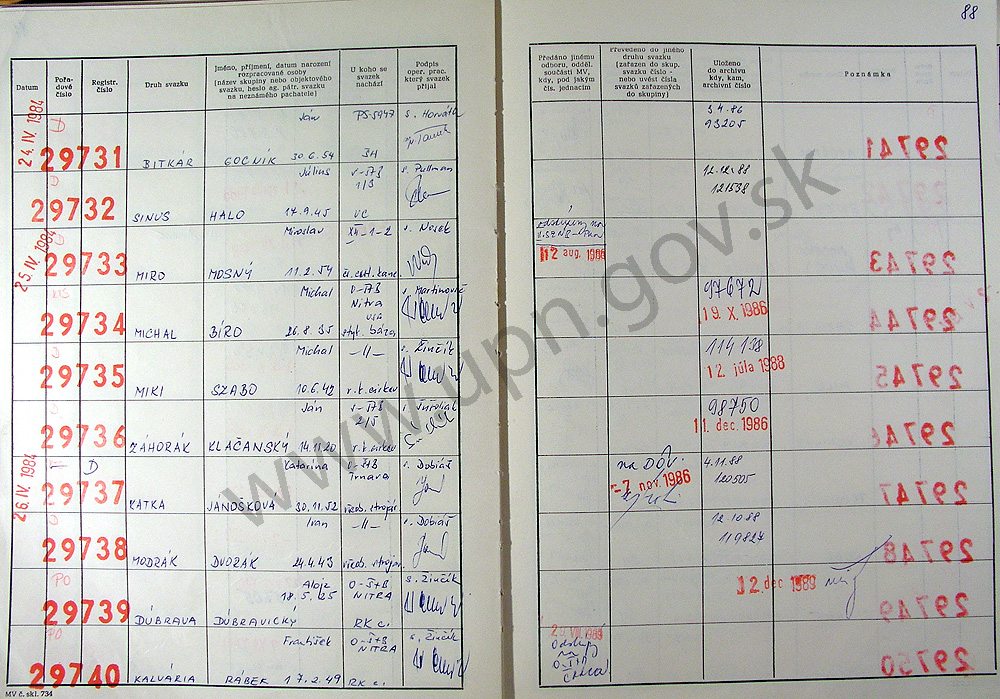 88
Datum
Pořa-
dové
číslo
Registr.
číslo
Druh svazku
Jméno, příjmení, datum narození
rozpracované osoby
(název skupiny nebo objektového
svazku, heslo ag. pátr. svazku
na neznámého pachatele)
U koho se
svazek
nachází
Podpis
oper. prac.
který svazek
přijal
Předáno jinému
odboru, odděl.
součásti MV,
kdy, pod jakým
čís. jednacím
Převedeno do jiného
druhu svazku
(zařazen do skup.
svazku číslo -
nebo uvést čísla
svazků zařazených
do skupiny)
Uloženo
do archivu
kdy, kam,
archivní číslo
Poznámka
24. IV. 1984
D
29731
BITKÁR
Ján
GOČNÍK 30.6.54
PS-5947
BH
s. Horváth
3.4.86
93205
29741
29732
SINUS
Július
HALO 17.9.45
V-ŠTB
1/3
VC
s. Pullman
12.12.88
121538
25. IV. 1984
29733
MIRO
Miroslav
MOSNÝ 11.2.54
XII-1-2
s. Nosek
12 aug. 1986
29743
29734
MICHAL
Michal
BÍRO 26.8.35
O-ŠTB
Nitra
s. Martinovič
97672
19. X. 1986
29744
29735
MIKI
Michal
SZABO 10.6.42
-11-
r.k. cirkev
s. Žinčík
114138
12. júla 1988
29745
29736
ZÁHORÁK
Ján
KLAČANSKÝ 14.11.20
V-ŠTB
2/5
r.k. cirkev
98750
11. dec. 1986
29746
26. IV. 1984
D
29737
KATKA
Katarína
JANOŠKOVÁ 30.11.52
O-ŠTB
Trnava
všeob. strojár.
s. Dobiáš
na DÓV
-7 nov. 1986
4.11.88
120505
29747
29738
MODRÁK
Ivan
DVOŘÁK 24.4.43
-11-
všeob. strojár.
s. Dobiáš
12.10.88
119827
29748
PO
29739
DÚBRAVA
Alojz
18.5.25
DÚBRAVICKÝ
O-ŠTB
NITRA
RK c.
s. Žinčík
12. dec 1989
29749
PO
29740
KALVÁRIA
František
RÁBEK 17.2.49
O-ŠTB
NITRA
RK c.
s. Žinčík
29750
MV č. skl. 734
www.upn.gov.sk